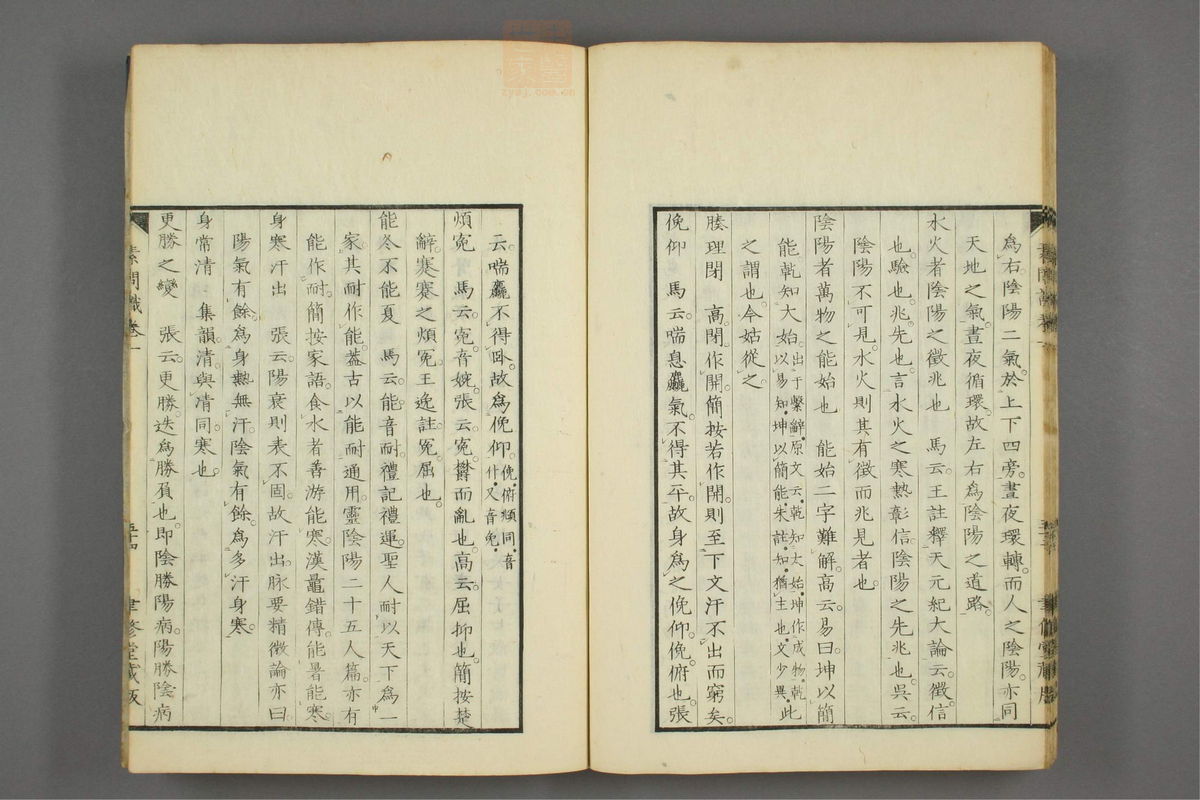 爲右陰陽二氣於上下四旁晝夜環轉而人之陰陽亦同
天地之氣晝夜循環故左右爲陰陽之道路
水火者陰陽之徵兆也　馬云王註釋天元紀大論云徵信
也驗也兆先也言水火之寒熱彰信陰陽之先兆也吳云
陰陽不可見水火則其有徵而兆見者也
陰陽者萬物之能始也　能始二字難解高云易曰坤以簡
能乾知大始出于繫辭原文云乾知太始坤作成物乾以易知坤以簡能朱註知猶主也文少異此
之謂也今姑從之
腠理閉　高閉作開簡按若作開則至下文汗不出而窮矣
俛仰　馬云喘息麤氣不得其平故身爲之俛仰俛俯也張
云喘麤不得臥故爲俛仰俛俯頫同音什又音免
煩寃　馬云寃音婉張云寃鬱而亂也高云屈抑也簡按楚
辭蹇蹇之煩寃王逸註寃屈也
能冬不能夏　馬云能音耐禮記禮運聖人耐以天下爲一
家其耐作能葢古以能耐通用靈陰陽二十五人篇亦有
能作耐簡按家語食水者善游能寒漢鼂錯傳能暑能寒
身寒汗出　張云陽衰則表不固故汗出脉要精微論亦曰
陽氣有餘爲身熱無汗陰氣有餘爲多汗身寒
身常清　集韻清與凊同寒也
更勝之變　張云更勝迭爲勝負也即陰勝陽病陽勝陰病
素問識卷一
聿修堂藏版
zysj.com.cn